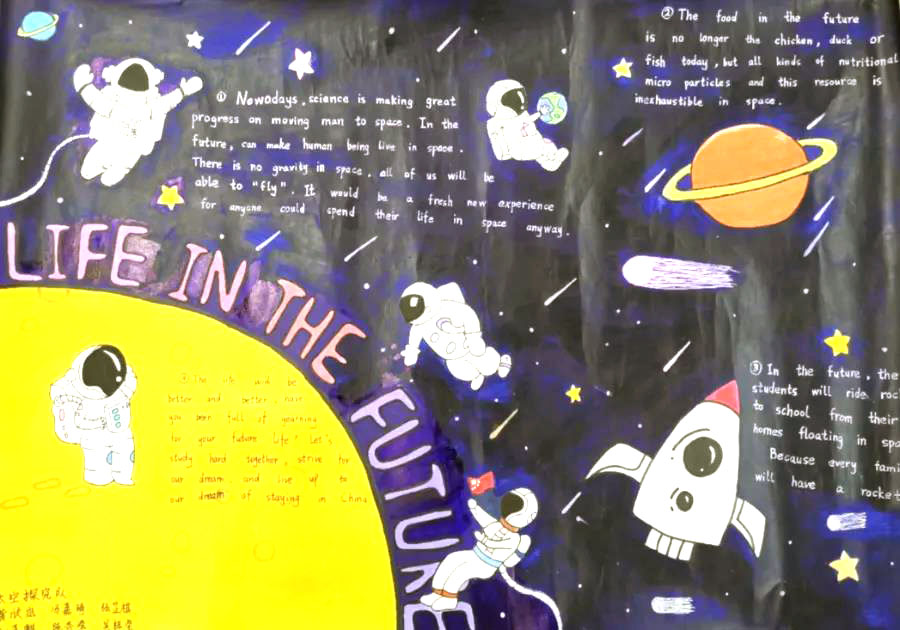 ① Nowadays, science is making great
progress on moving man to space. In the
future, can make human being live in space.
There is no gravity in space. all of us will be
able to "fly". It would be a fresh new experience
for anyone could spend their life in space anyway.
② The food in the future
is no longer the chicken, duck or
fish today, but all kinds of nutritional
micro particles and this resource is
inexhaustible in space.
LIFE IN THE FUTURE
③ In the future, the
students will ride roc
to school from their
homes floating in spa
Because every fami
will have a rocket
The life will be
better and better, have
you been full of yearning
for your future life? Let's
study hard together, strive for
our dream, and live up to
our dream of staying in China
太空探究队